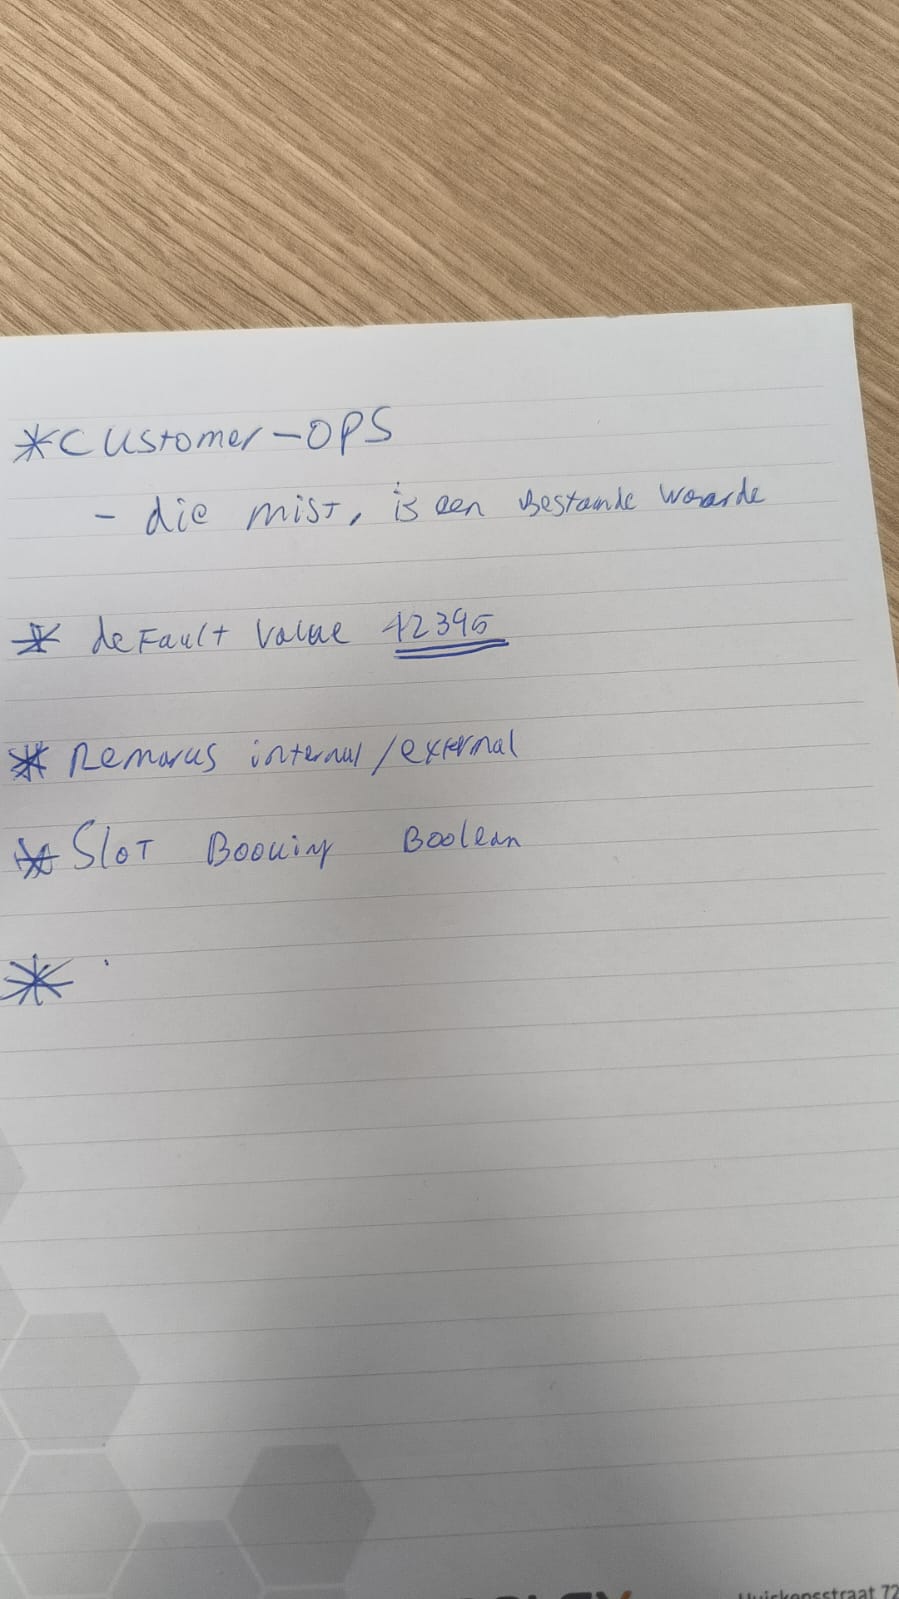 * Customer-OPS
- die mist, is een Bestaande waarde
* deFault value 42395
* Remarks internal/external
* Slot Booking Boolean
*